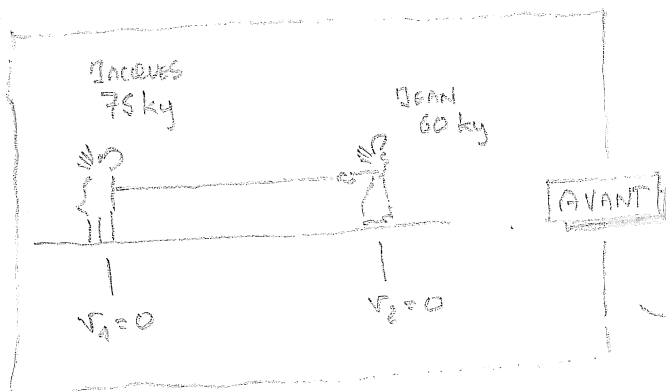 JACQUES
75 kg
JEAN
60 kg
AVANT
v₁ = 0
v₂ = 0